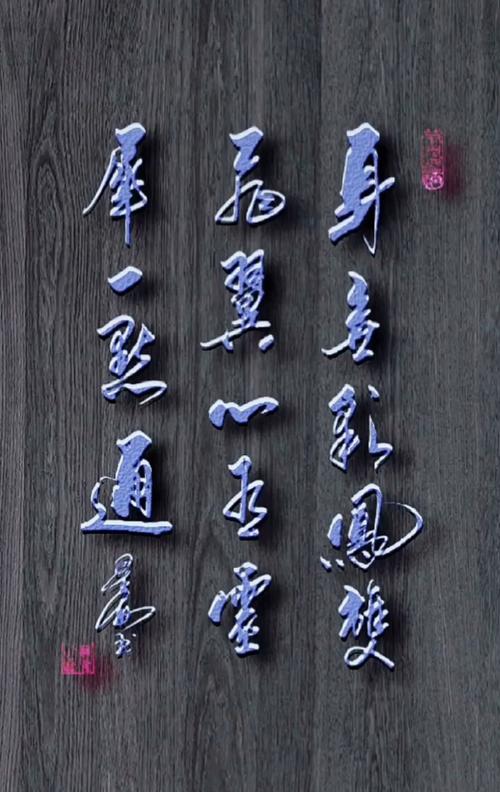 身無彩鳳雙
飛翼心有靈
犀一點通